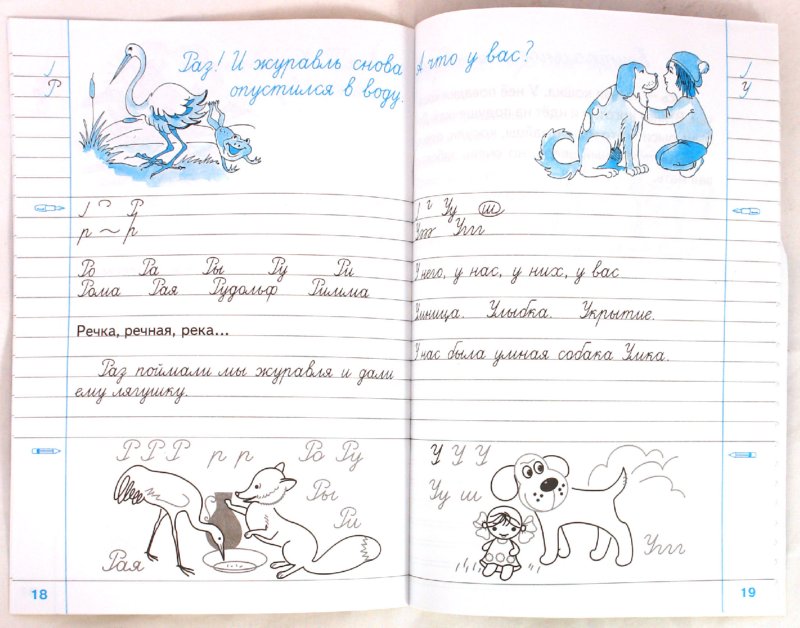 Раз! И журавль снова
опустился в воду.
Р
р ~ р
Ро Ра Ры Ру Ри
Рома Рая Рудольф Римма
Речка, речная, река...
Раз поймали мы журавля и дали
ему лягушку.
Р Р Р р р Ро Ру
Ры
Ри
Рая
18
А что у вас?
У
Уу ш
Угг
У него, у нас, у них, у вас
Умница. Улыбка. Укрытие.
У нас была умная собака Умка.
У У У
Уу ш
Угг
19